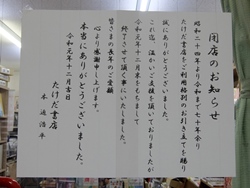 閉店のお知らせ
昭和二十四年より令和まで七十年余り
たけだ書店をご利用格別のお引き立てを賜り
誠にありがとうございます。
これ迄、温かいご支援を頂いておりましたが
令和元年十二月末をもちまして
終了させて頂く事にいたしました。
皆さまの長年のご愛顧
心より感謝申し上げます。
本当にありがとうございました。
令和元年十二月吉日
たけだ書店